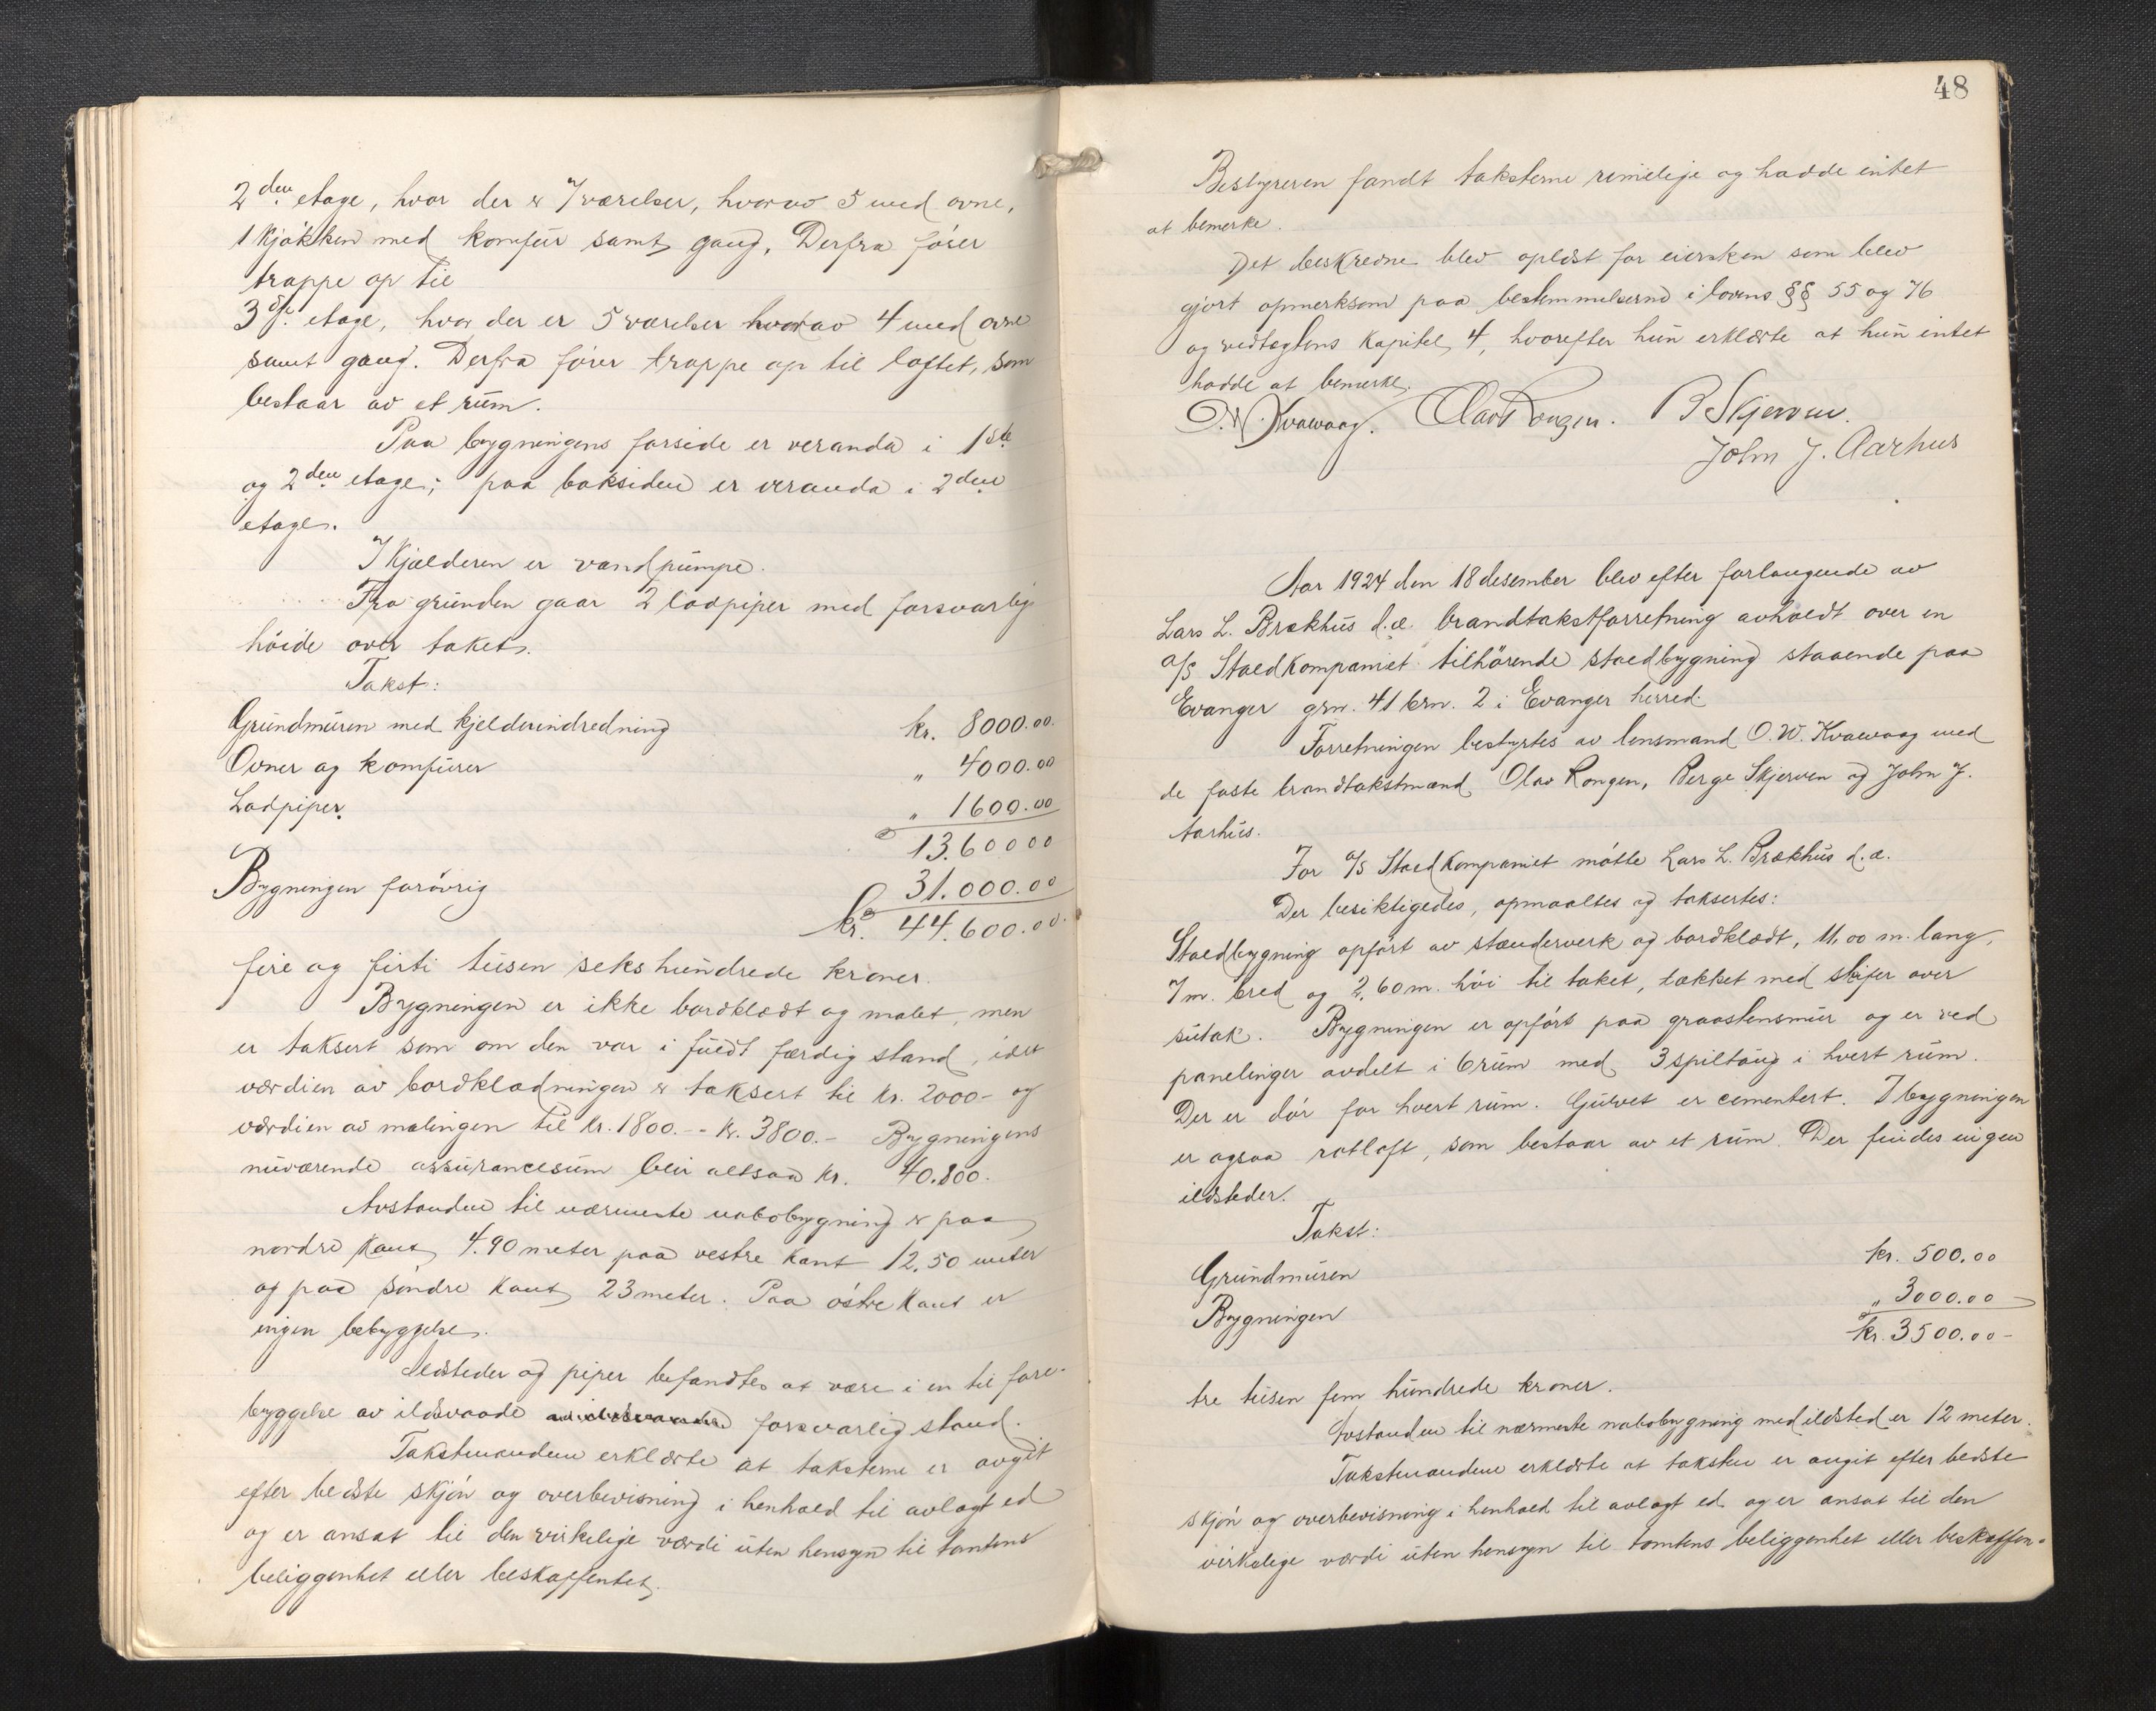 2den etage, hvor der er 7 værelser, hvorav 5 med ovne,
1 kjøkken med komfür samt gang. Derfra fører
trappe op til
3dje etage, hvor der er 5 værelser hvorav 4 med ovne
samt gang. Derfra fører trappe op til loftet, som
bestaar av et rüm.
Paa bygningens forside er veranda i 1ste
og 2den etage; paa baksiden er veranda i 2den
etage.
I kjælderen er vandpümpe.
Fra gründen gaar 2 lodpiper med forsvarlig
høide over taket.
Takst:
Gründmüren med kjelderindredning kr. 8000.00
Ovner og komfürer " 4000.00
Lodpiper. " 1600.00
13.60000
Bygningen forøvrig 31.000.00
kr. 44.600.00.
fire og firti tüsen sekshündrede kroner.
Bygningen er ikke bordklædt og malet, men
er taksert som om den var i füldt færdig stand, idet
værdien av bordklædningen er taksert til kr. 2000- og
værdien av malingen til kr. 1800.- - kr. 3800.- Bygningens
nüværende assürancesüm blir altsaa kr. 40.800.
Avstanden til nærmeste nabobygning er paa
nordre kant 4.90 meter paa vestre kant 12.50 meter
og paa søndre kant 23 meter. Paa østre kant er
ingen bebyggelse.
Ildsteder og piper befandtes at være i en til fore-
byggelse av ildsvaade av ildsvaade forsvarlig stand.
Takstmændene erklærte at taksterne er avgit
efter bedste skjøn og overbevisning i henhold til avlagt ed
og er ansat til den virkelige værdi üten hensyn til tomtens
beliggenhet eller beskaffenhet.
48
Bestyreren fandt taksterne rimelige og hadde intet
at bemerke.
Det beskrevne blev oplæst for eiersken som blev
gjort opmerksom paa bestemmelserne i lovens §§ 55 og 76
og vedtægtens kapitel 4, hvorefter hün erklærte at hün intet
hadde at bemerke.
O. W. Kvamaag. Olav Rongen. B Skjerven.
John J. Aarhus
Aar 1924 den 18 desember blev efter forlangende av
Lars L. Brækhüs d.æ. brandtakstforretning avholdt over en
A/S Staldkompaniet tilhørende staldbygning staaende paa
Evanger grn. 41 brn. 2 i Evanger herred.
Forretningen bestyrtes av lensmand O. W. Kvamaag med
de faste brandtakstmænd Olav Rongen, Berge Skjerven og John J.
Aarhüs.
For A/S Staldkompaniet møtte Lars L. Brækhüs d.æ.
Der besiktigedes, opmaaltes og taksertes:
Staldbygning opført av stænderverk og bordklædt, 11,00 m. lang,
7 m. bred og 2,60 m. høi til taket, tækket med skifer over
sütak. Bygningen er opført paa graastensmür og er ved
panelinger avdelt i 6 rüm med 3 spiltaüg i hvert rüm.
Der er dør for hvert rüm. Gülvet er cementert. I bygningen
er ogsaa rotloft, som bestaar av et rüm. Der findes ingen
ildsteder.
Takst:
Gründmüren kr. 500.00
Bygningen " 3000.00
kr. 3500.00-
tre tüsen fem hündrede kroner.
Avstanden til nærmeste nabobygning med ildsted er 12 meter.
Takstmændene erklærte at taksten er avgit efter bedste
skjøn og overbevisning i henhold til avlagt ed og er ansat til den
virkelige værdi üten hensyn til tomtens beliggenhet eller beskaffen-